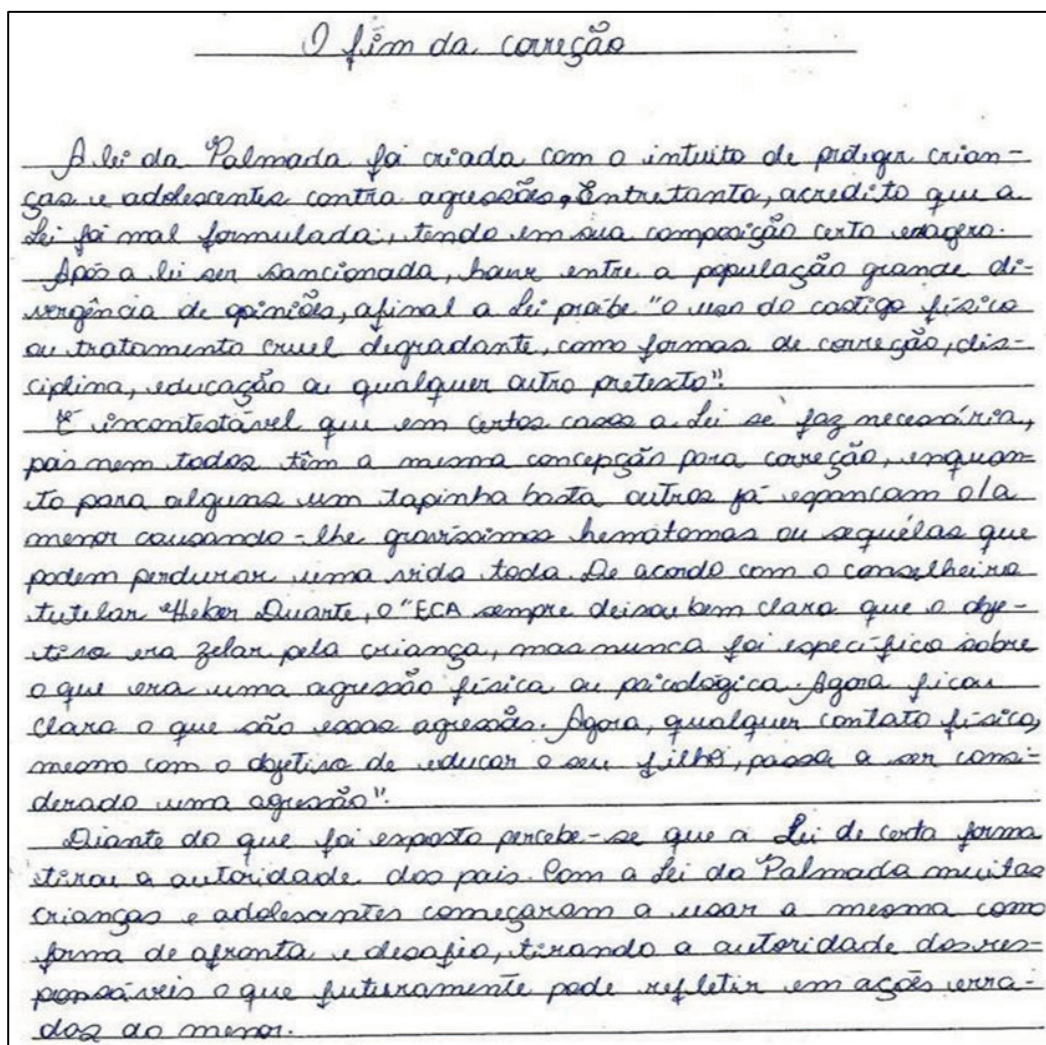 O fim da correção
A lei da Palmada foi criada com o intuito de proteger crian-
ças e adolescentes contra agressões, Entretanto, acredito que a
Lei foi mal formulada, tendo em sua composição certo exagero.
Após a lei ser sancionada, houve entre a população grande di-
vergência de opiniões, afinal a Lei proíbe "o uso do castigo físico
ou tratamento cruel degradante, como formas de correção, dis-
ciplina, educação ou qualquer outro pretexto".
É incontestável que em certos casos a Lei se faz necessária,
pois nem todos têm a mesma concepção para correção, enquan-
to para alguns um tapinha basta outros já espancam o/a
menor causando-lhe gravíssimos hematomas ou sequélas que
podem perdurar uma vida toda. De acordo com o conselheiro
tutelar Heber Duarte, o "ECA sempre deixou bem claro que o obje-
tivo era zelar pela criança, mas nunca foi específico sobre
o que era uma agressão física ou psicológica. Agora ficou
claro o que são essas agressões. Agora, qualquer contato físico,
mesmo com o objetivo de educar o seu filho, passa a ser consi-
derado uma agressão".
Diante do que foi exposto percebe-se que a Lei de certa forma
tirou a autoridade dos pais. Com a Lei da Palmada muitas
crianças e adolescentes começaram a usar a mesma como
forma de afronta e desafio, tirando a autoridade dos res-
ponsáveis o que futuramente pode refletir em ações erra-
das do menor.